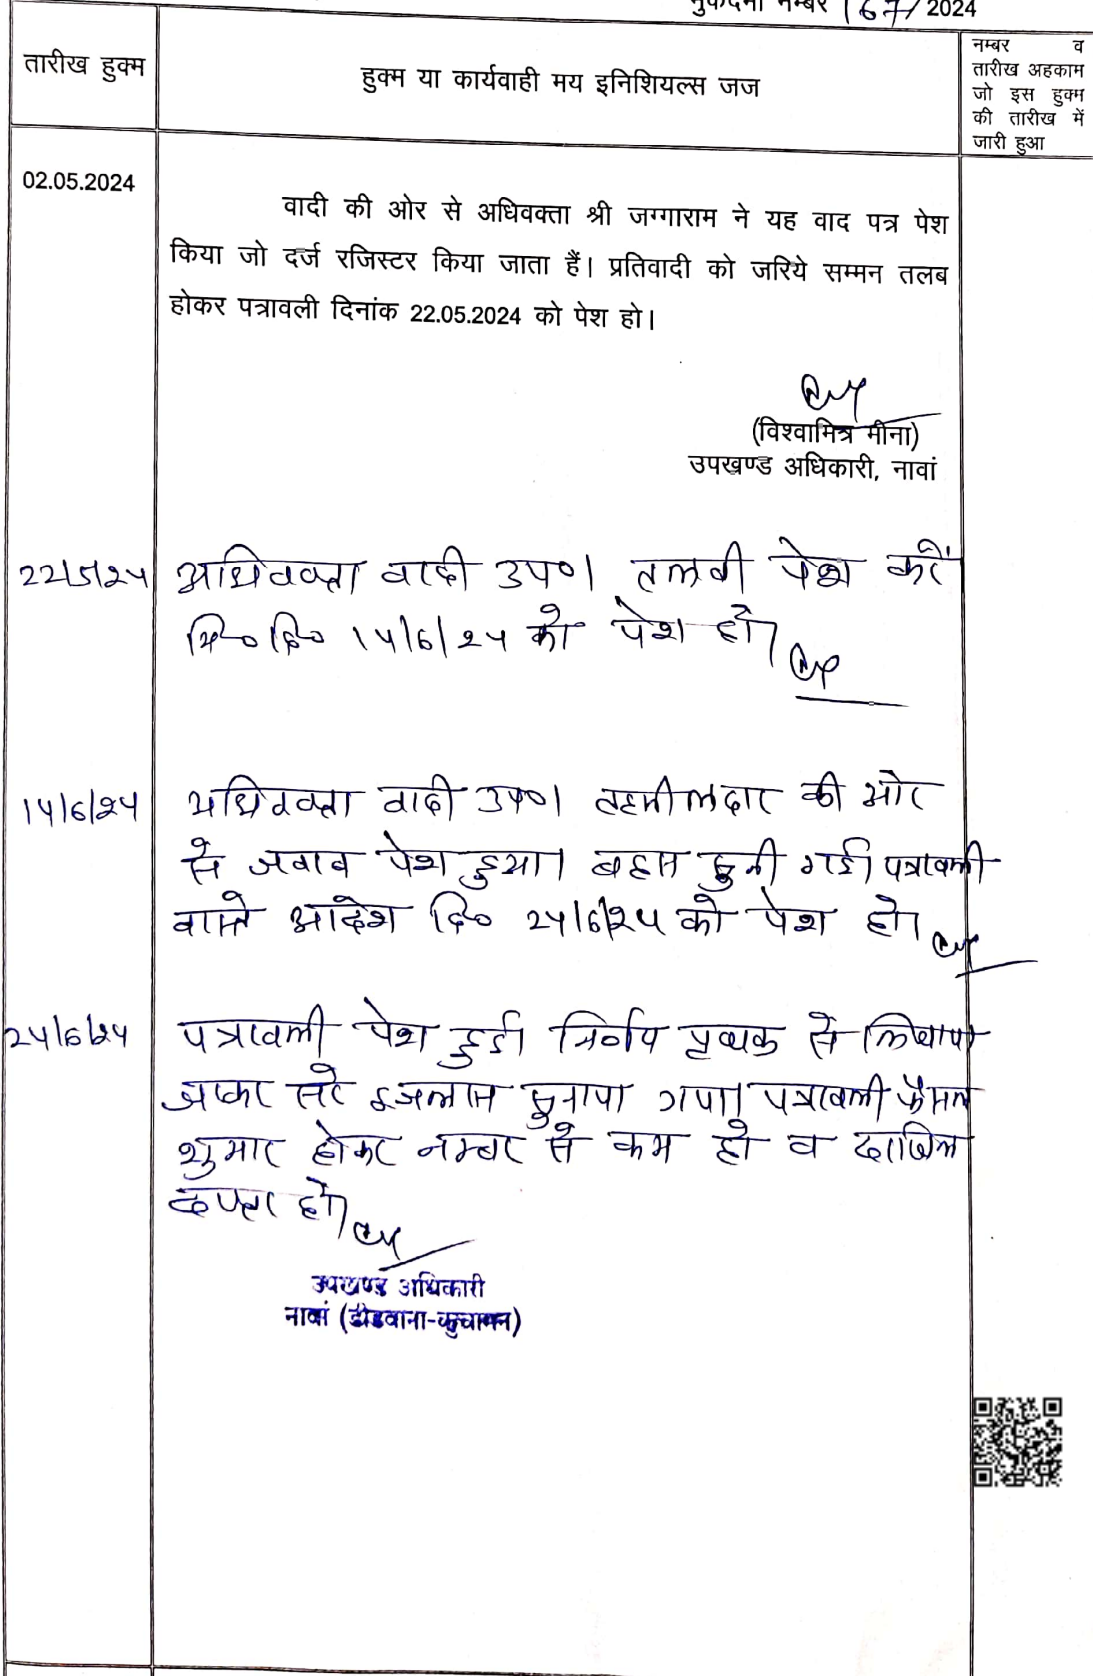 मुकदमा नम्बर 167/2024
तारीख हुक्म
हुक्म या कार्यवाही मय इनिशियल्स जज
नम्बर व
तारीख अहकाम
जो इस हुक्म
की तारीख में
जारी हुआ
02.05.2024
वादी की ओर से अधिवक्ता श्री जग्गाराम ने यह वाद पत्र पेश
किया जो दर्ज रजिस्टर किया जाता हैं। प्रतिवादी को जरिये सम्मन तलब
होकर पत्रावली दिनांक 22.05.2024 को पेश हो।
(विश्वामित्र मीना)
उपखण्ड अधिकारी, नावां
22/5/24 अधिवक्ता वादी उप०। तलबी पेश करें
मि० दि० 14/6/24 को पेश हो।
14/6/24 अधिवक्ता वादी उप०। तहसीलदार की ओर
से जवाब पेश हुआ। बहस सुनी गई। पत्रावली
वास्ते आदेश दि० 24/6/24 को पेश हो।
24/6/24 पत्रावली पेश हुई। निर्णय पृथक से लिखाया
जाकर सरे इजलास सुनाया गया। पत्रावली फैसल
शुमार होकर नम्बर से कम हो व दाखिल
दफ्तर हो।
उपखण्ड अधिकारी
नावां (डीडवाना-कुचामन)